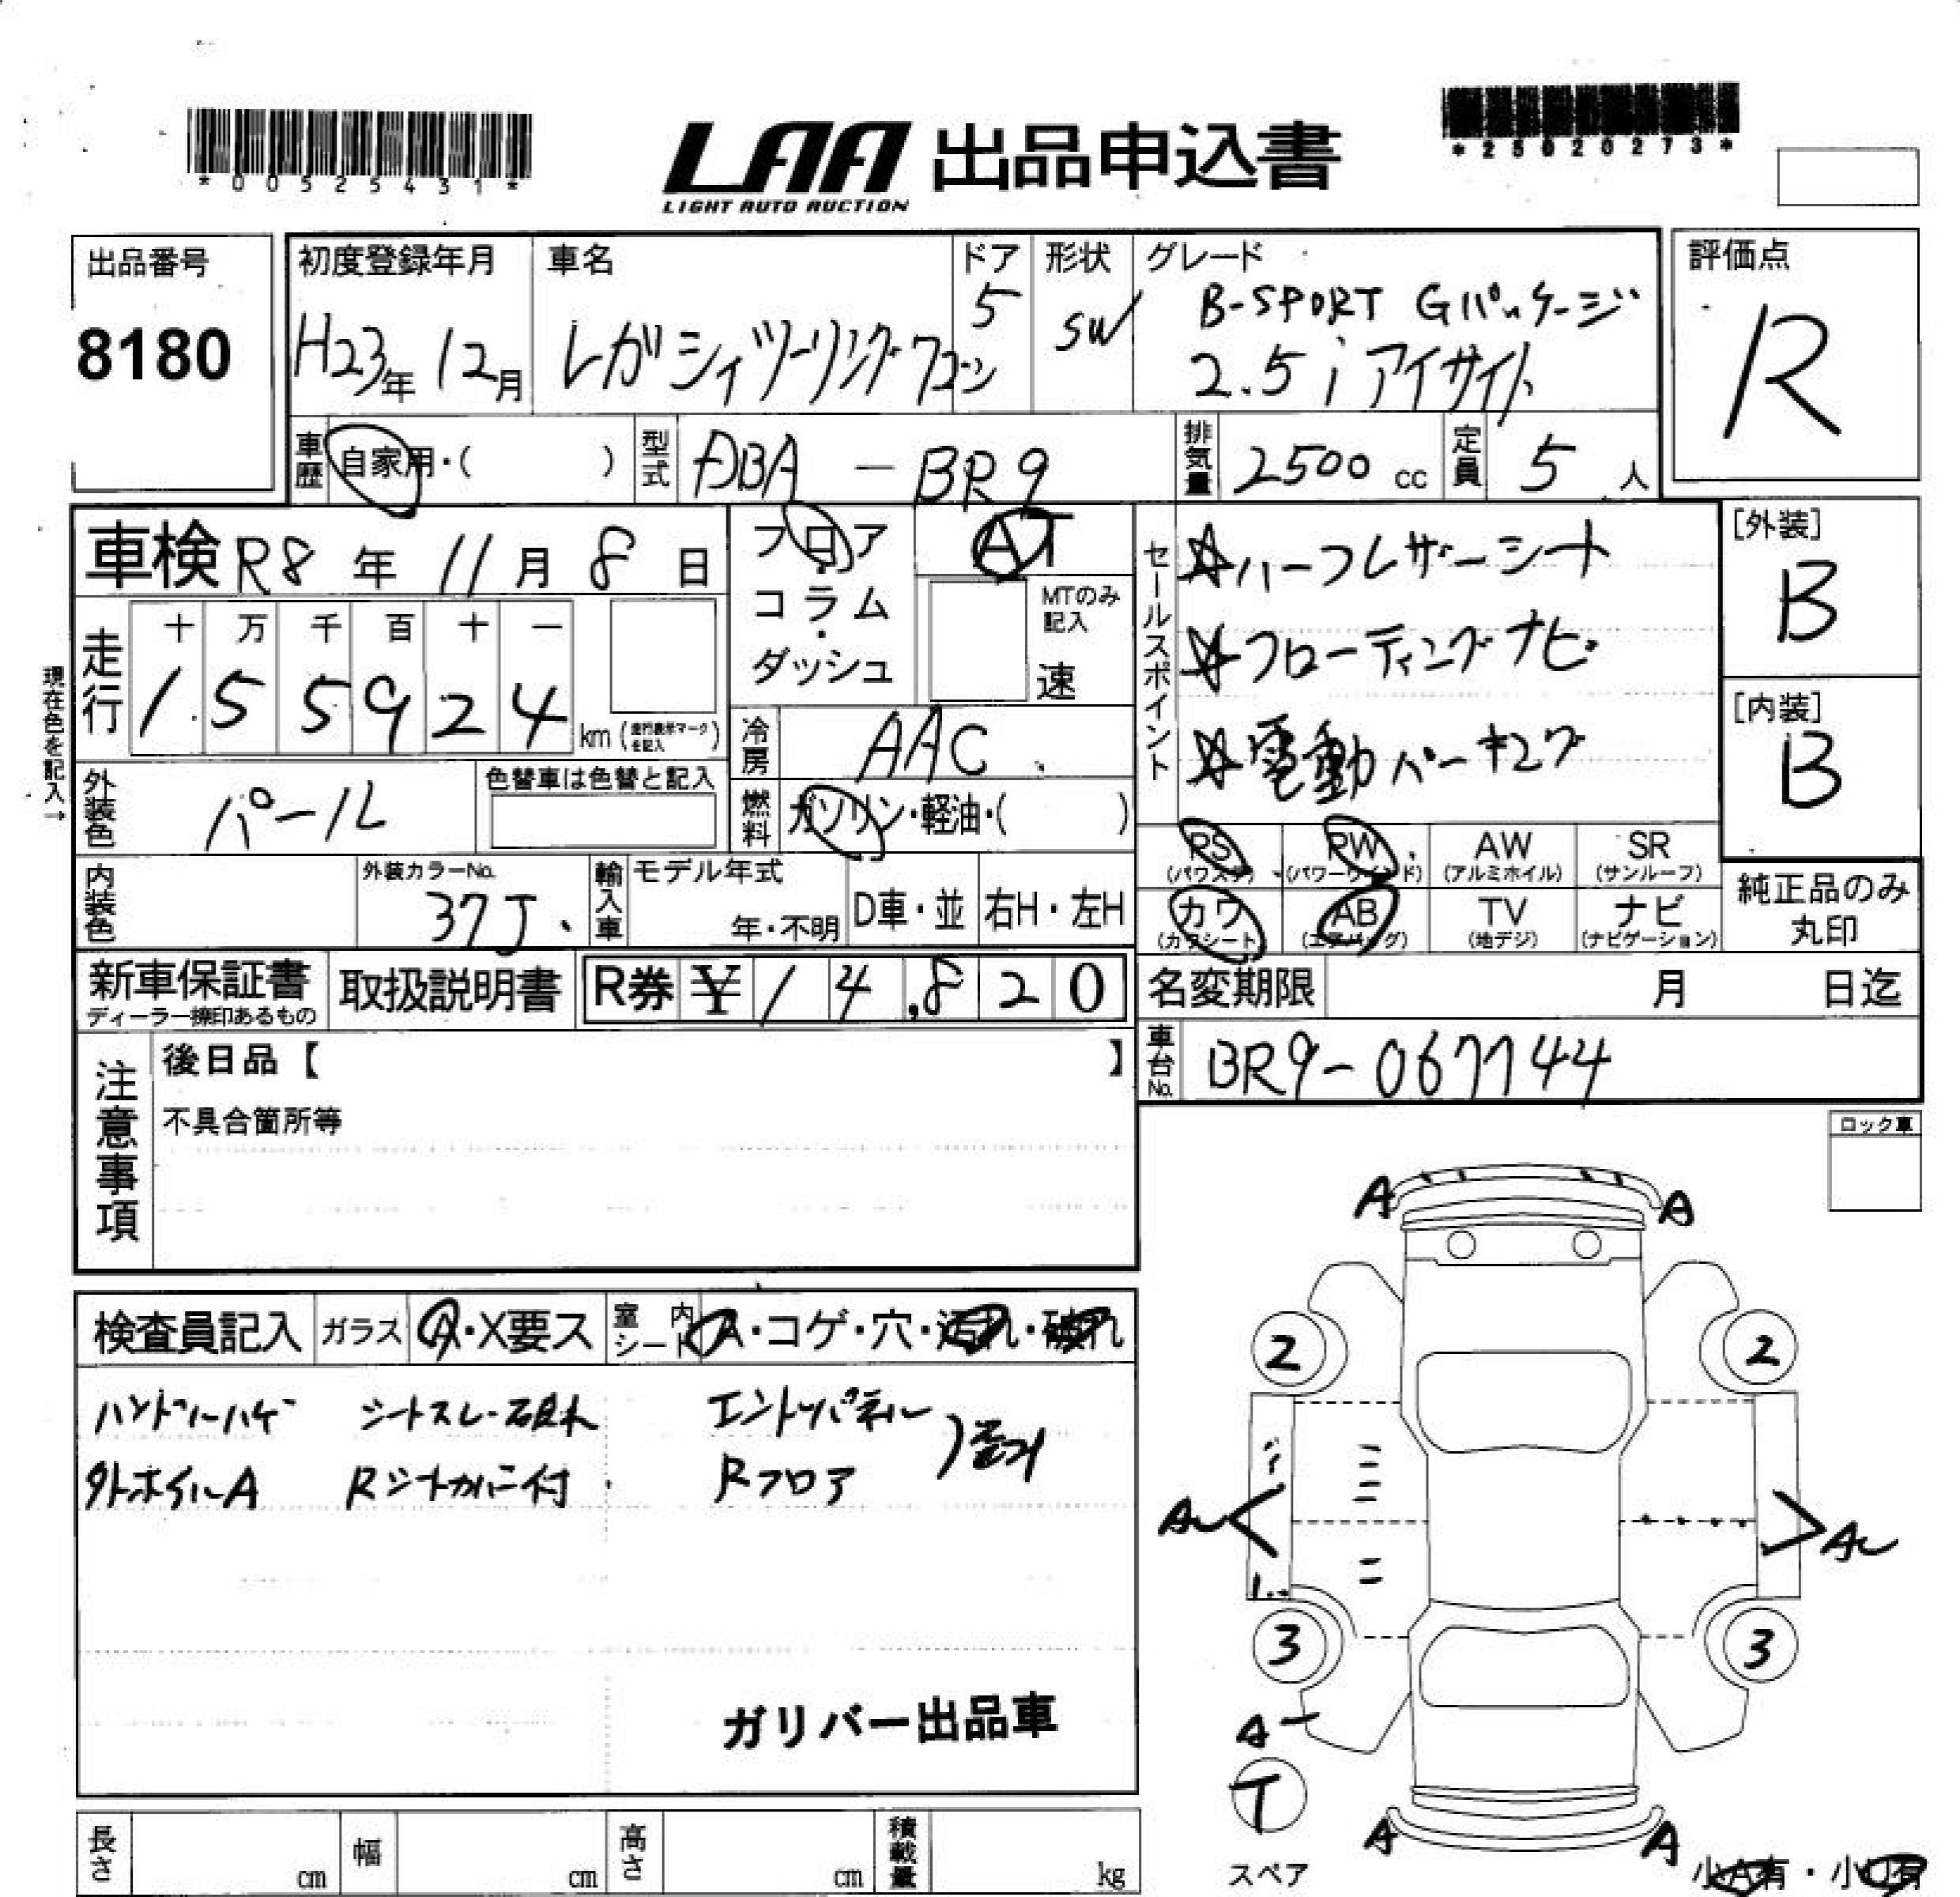 *00525431*
LAA 出品申込書
LIGHT AUTO AUCTION
*25020273*
出品番号
8180
初度登録年月
H23年 12月
車名
レガシィツーリングワゴン
ドア
5
形状
SW
グレード
B-SPORT Gパッケージ
2.5i アイサイト
評価点
R
車歴 自家用・( )
型式 DBA - BR9
排気量 2500 cc
定員 5 人
車検 R8年 11月 8日
フロア・コラム・ダッシュ
AT
MTのみ記入
速
セールスポイント
☆ハーフレザーシート
☆フローティングナビ
☆電動パーキング
[外装]
B
[内装]
B
現在色を記入→
走行
十 万 千 百 十 一
1 5 5 9 2 4 km (走行表示マークを記入)
冷房 AAC
外装色 パール
色替車は色替と記入
燃料 ガソリン・軽油・( )
PS (パワステ)
PW (パワーウインド)
AW (アルミホイル)
SR (サンルーフ)
カワ (カワシート)
AB (エアバッグ)
TV (地デジ)
ナビ (ナビゲーション)
純正品のみ丸印
内装色
外装カラーNo.
37J
輸入車
モデル年式
年・不明
D車・並
右H・左H
新車保証書
ディーラー捺印あるもの
取扱説明書
R券 ¥14,820
名変期限 月 日迄
車台No. BR9-067744
注意事項
後日品【 】
不具合箇所等
ロック車
検査員記入
ガラス A・X要ス
室内シート A・コゲ・穴・汚れ・破れ
ハンドルハゲ シートスレ・破れ エンドパネル
外ホイルA Rシートカバー付 Rフロア
ガリバー出品車
A A
2 2
A A
3 3
A
T
スペア
A A
小A有・小U有
長さ cm
幅 cm
高さ cm
積載量 kg